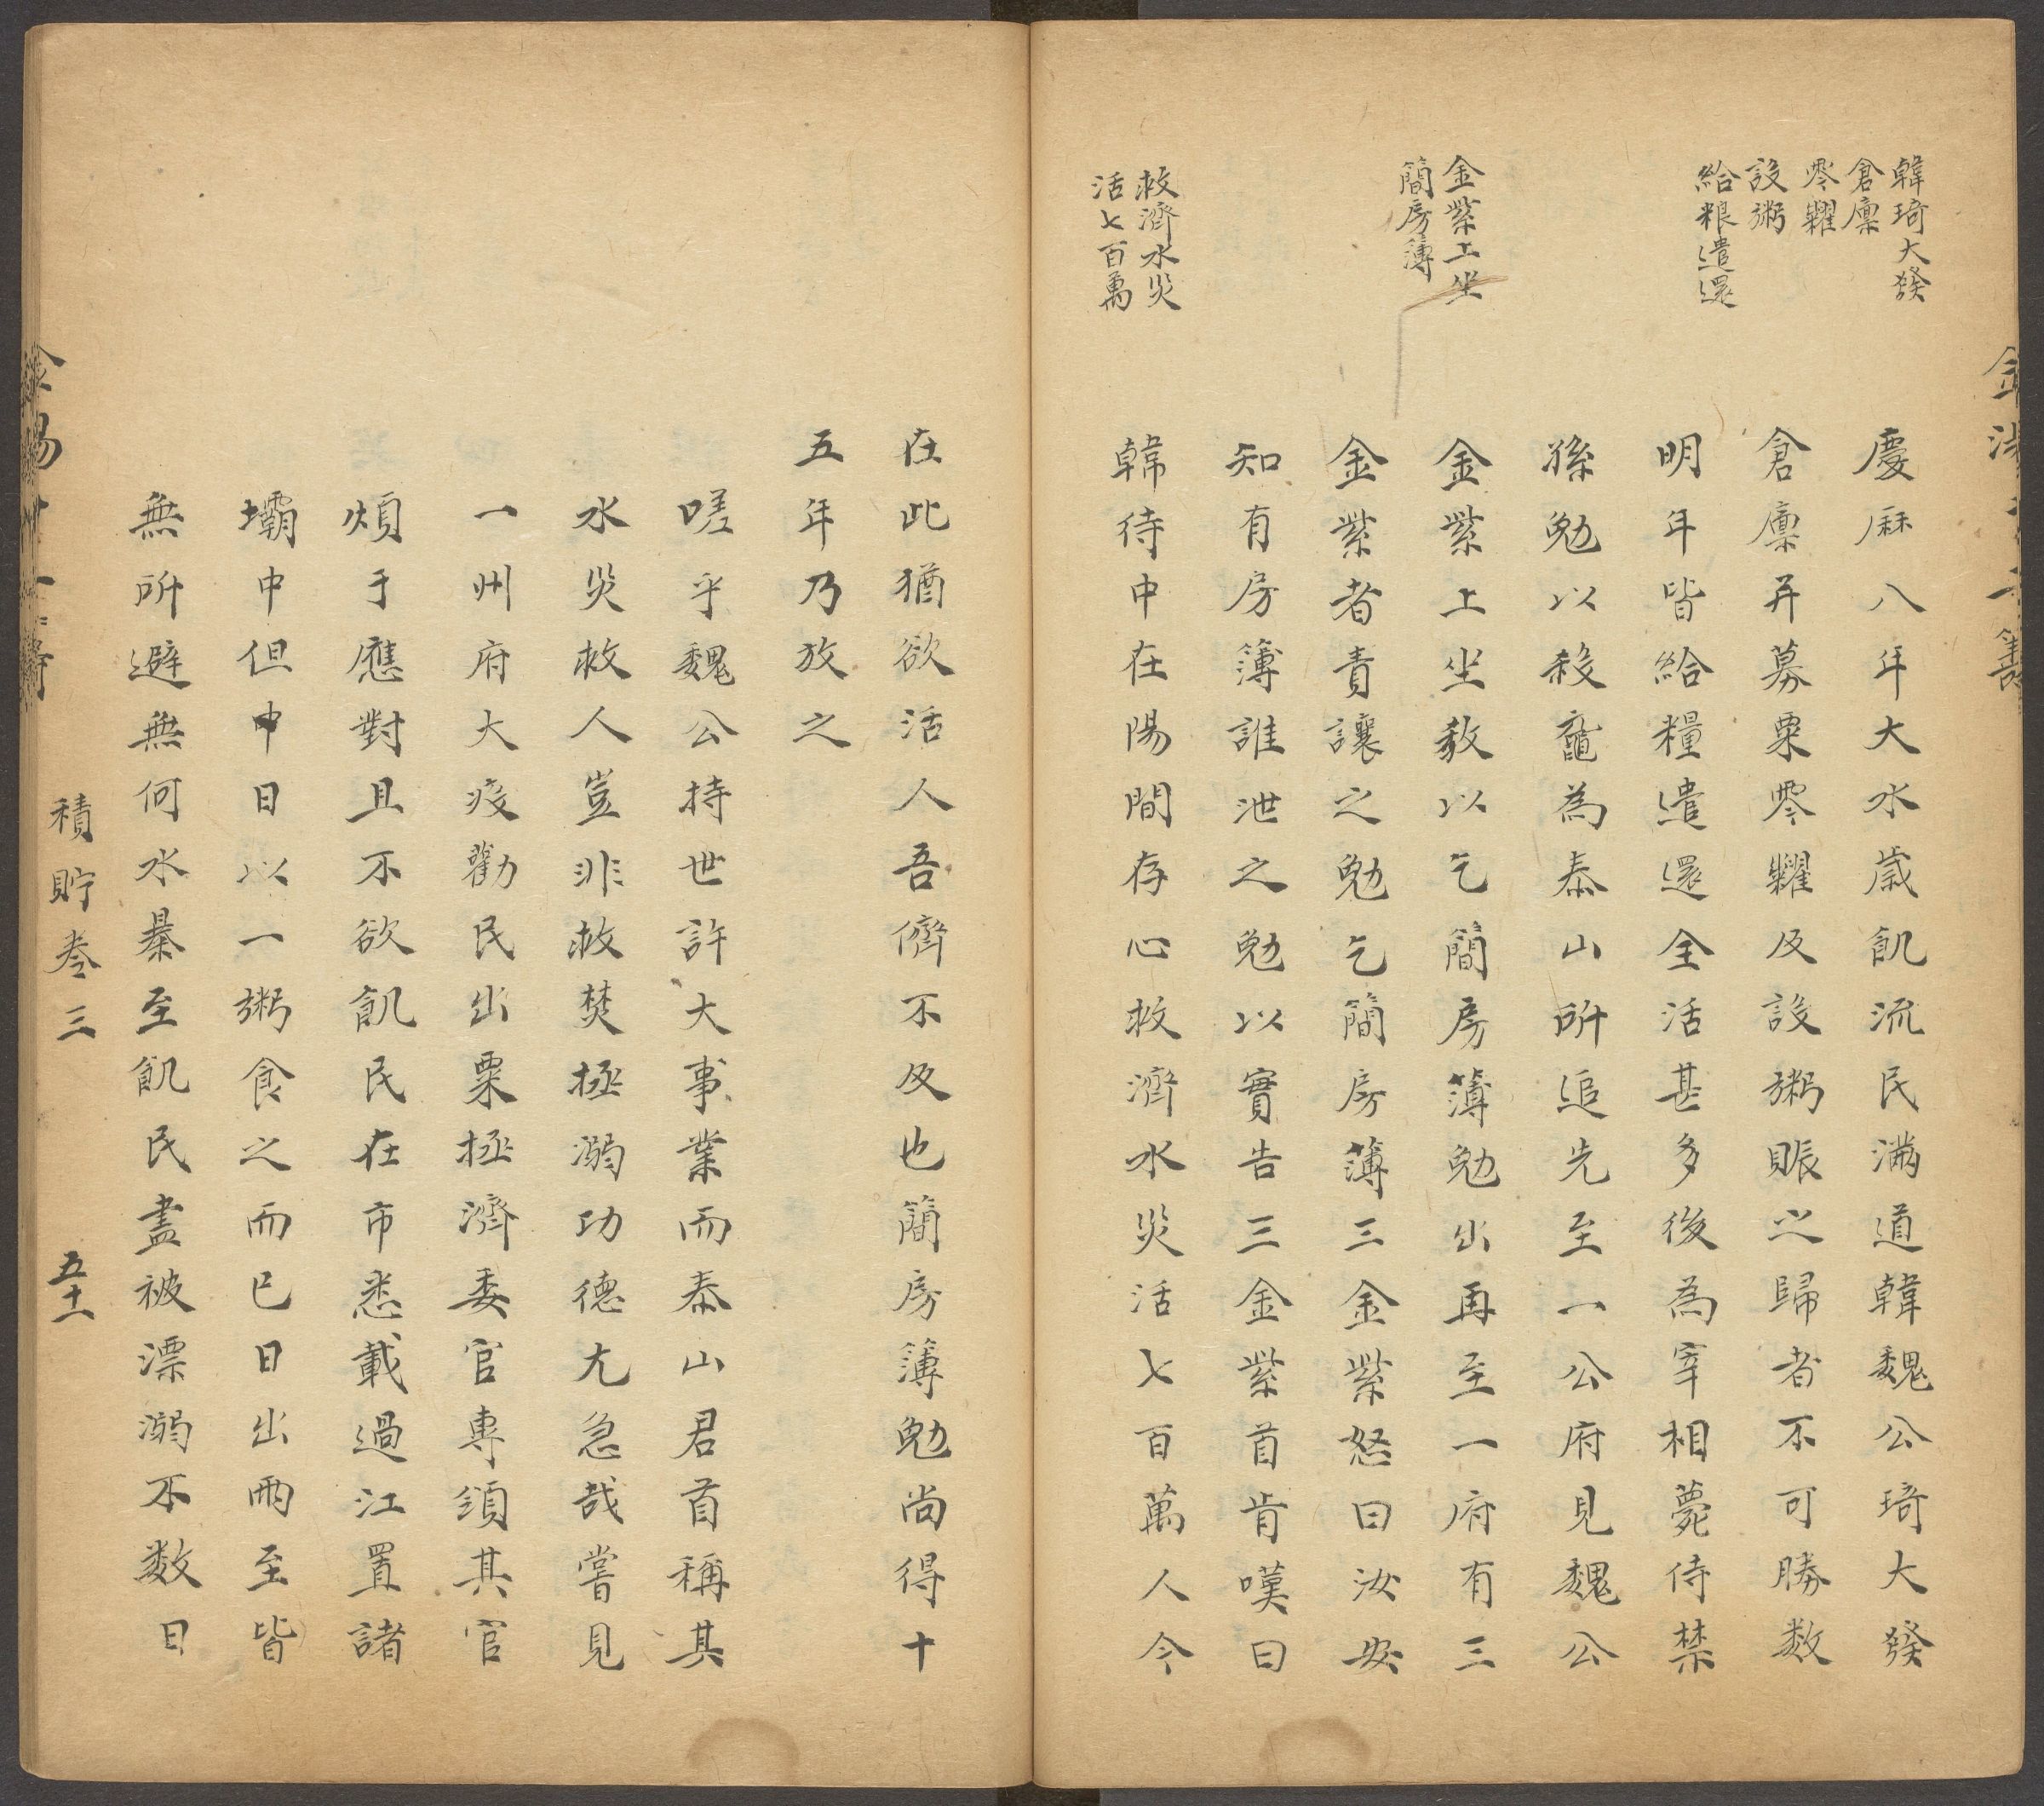 韓琦大發
倉廪
零糶
設粥
給粮遣還
金紫上坐
簡房薄
救濟水災
活七百萬
慶厤八年大水歲飢流民滿道韓魏公琦大發
倉廪并募粟零糶及設粥賑之歸者不可勝数
明年皆給糧遣還全活甚多後為宰相薨侍禁
孫勉以殺黿為泰山所追先至一公府見魏公
金紫上坐教以乞簡房薄勉出再至一府有三
金紫者責讓之勉乞簡房薄三金紫怒曰汝安
知有房簿誰泄之勉以實告三金紫首肯嘆曰
韓待中在陽間存心救濟水災活七百萬人今
在此猶欲活人吾儕不及也簡房簿勉尚得十
五年乃放之
嗟乎魏公持世許大事業而泰山君首稱其
水災救人豈非救焚拯溺功德尤急哉嘗見
一州府大疫勸民出粟拯濟委官專領其官
煩于應對且不欲飢民在市悉載過江置諸
壩中但申日以一粥食之而已日出雨至皆
無所避無何水暴至飢民盡被漂溺不数日
積貯卷三
五十一